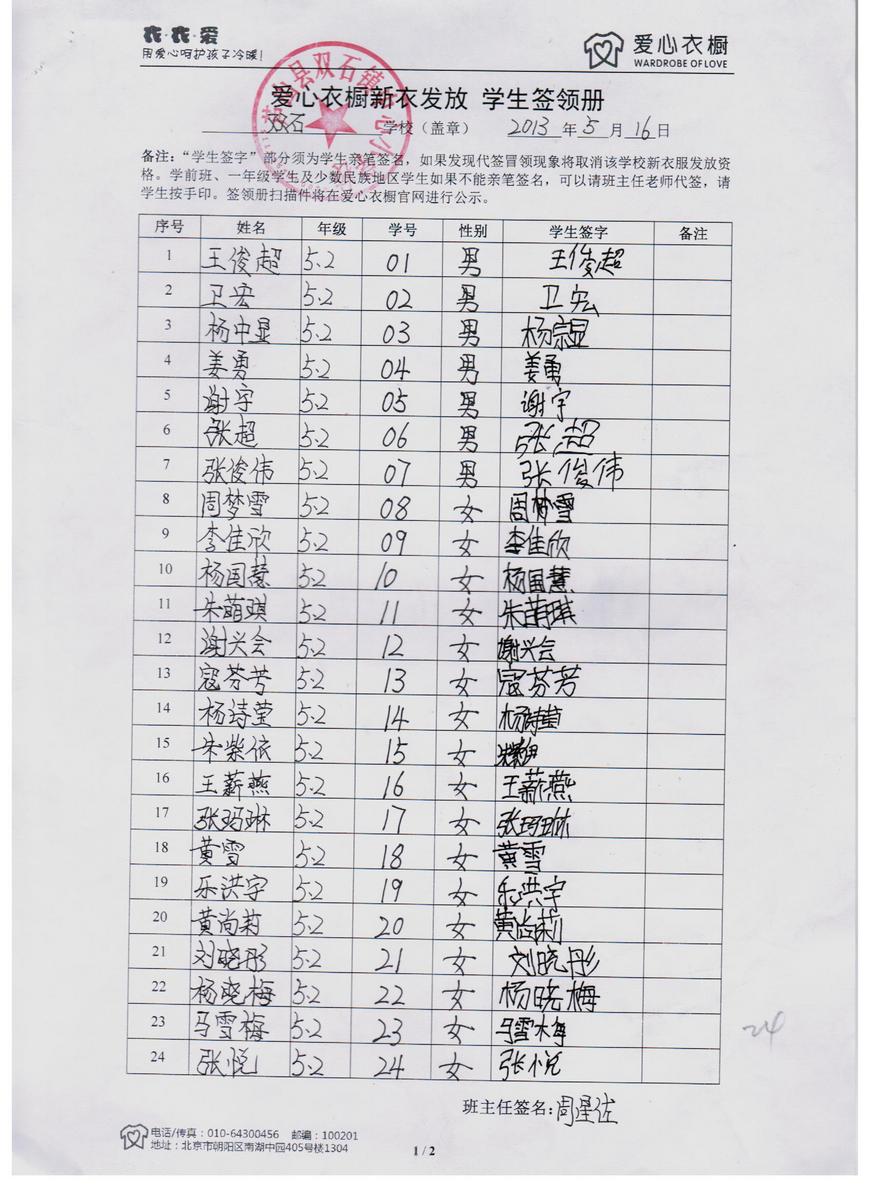 衣·衣·爱
用爱心呵护孩子冷暖!
爱心衣橱
WARDROBE OF LOVE
爱心衣橱新衣发放 学生签领册
双石 学校（盖章） 2013 年 5 月 16 日
备注：“学生签字”部分须为学生亲笔签名，如果发现代签冒领现象将取消该学校新衣服发放资
格。学前班、一年级学生及少数民族地区学生如果不能亲笔签名，可以请班主任老师代签，请
学生按手印。签领册扫描件将在爱心衣橱官网进行公示。
序号 姓名 年级 学号 性别 学生签字 备注
1 王俊超 5.2 01 男 王俊超
2 卫宏 5.2 02 男 卫宏
3 杨中显 5.2 03 男 杨宗显
4 姜勇 5.2 04 男 姜勇
5 谢宇 5.2 05 男 谢宇
6 张超 5.2 06 男 张超
7 张俊伟 5.2 07 男 张俊伟
8 周梦雪 5.2 08 女 周梦雪
9 李佳欣 5.2 09 女 李佳欣
10 杨国慧 5.2 10 女 杨国慧
11 朱萌琪 5.2 11 女 朱萌琪
12 谢兴会 5.2 12 女 谢兴会
13 寇芬芳 5.2 13 女 寇芬芳
14 杨诗莹 5.2 14 女 杨诗莹
15 宋紫依 5.2 15 女
16 王薪燕 5.2 16 女 王薪燕
17 张玛琳 5.2 17 女 张玛琳
18 黄雪 5.2 18 女 黄雪
19 乐洪宇 5.2 19 女 乐洪宇
20 黄尚莉 5.2 20 女 黄尚莉
21 刘晓彤 5.2 21 女 刘晓彤
22 杨晓梅 5.2 22 女 杨晓梅
23 马雪梅 5.2 23 女 马雪梅
24 张悦 5.2 24 女 张悦
24
班主任签名：周星佐
电话/传真：010-64300456 邮编：100201
地址：北京市朝阳区南湖中园405号楼1304
1 / 2